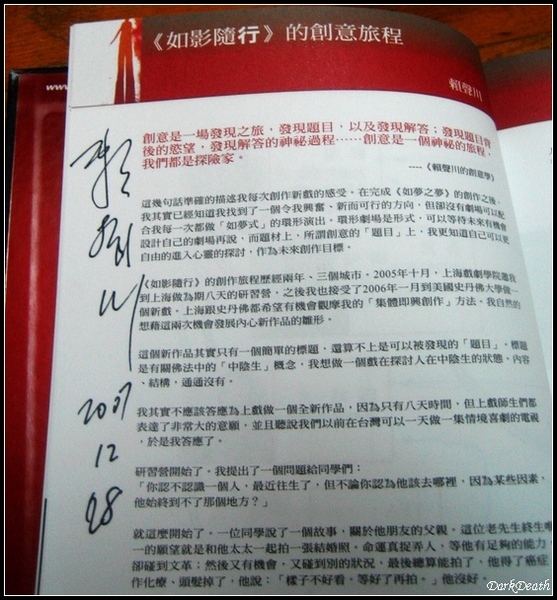 《如影隨行》的創意旅程
賴聲川
創意是一場發現之旅，發現題目，以及發現解答；發現題目背
後的慾望，發現解答的神祕過程……創意是一個神祕的旅程，
我們都是探險家。
----《賴聲川的創意學》
這幾句話準確的描述我每次創作新戲的感受。在完成《如夢之夢》的創作之後，
我其實已經知道我找到了一個令我興奮、新而可行的方向，但卻沒有劇場可以配
合我每一次都做「如夢式」的環形演出。環形劇場是形式，可以等待未來有機會
設計自己的劇場再說，而題材上，所謂創意的「題目」上，我更知道自己可以更
自由的進入心靈的探討，作為未來創作目標。
《如影隨行》的創作旅程歷經兩年、三個城市。2005年十月，上海戲劇學院邀我
到上海做為期八天的研習營，之後我也接受了2006年一月到美國史丹佛大學做一
個新戲。上海跟史丹佛都希望有機會觀摩我的「集體即興創作」方法。我自然的
想藉這兩次機會發展內心新作品的雛形。
這個新作品其實只有一個簡單的標題，還算不上是可以被發現的「題目」。標題
是有關佛法中的「中陰生」概念，我想做一個戲在探討人在中陰生的狀態。內容
、結構，通通沒有。
我其實不應該答應為上戲做一個全新作品，因為只有八天時間，但上戲師生們都
表達了非常大的意願，並且聽說我們以前在台灣可以一天做一集情境喜劇的電視
，於是我答應了。
研習營開始了。我提出了一個問題給同學們：
「你認不認識一個人，最近往生了，但不論你認為他該去哪裡，因為某些因素，
他始終到不了那個地方？」
就這麼開始了。一位同學說了一個故事，關於他朋友的父親。這位老先生終生唯
一的願望就是和他太太一起拍一張結婚照。命運真捉弄人，等他有足夠的能力，
卻碰到文革；然後又有機會，又碰到別的狀況，最後總算能拍了，他得了癌症，
作化療、頭髮掉了，他說：「樣子不好看，等好了再拍。」他沒好。
賴聲川
2007
12
28
www.
DarkDeath